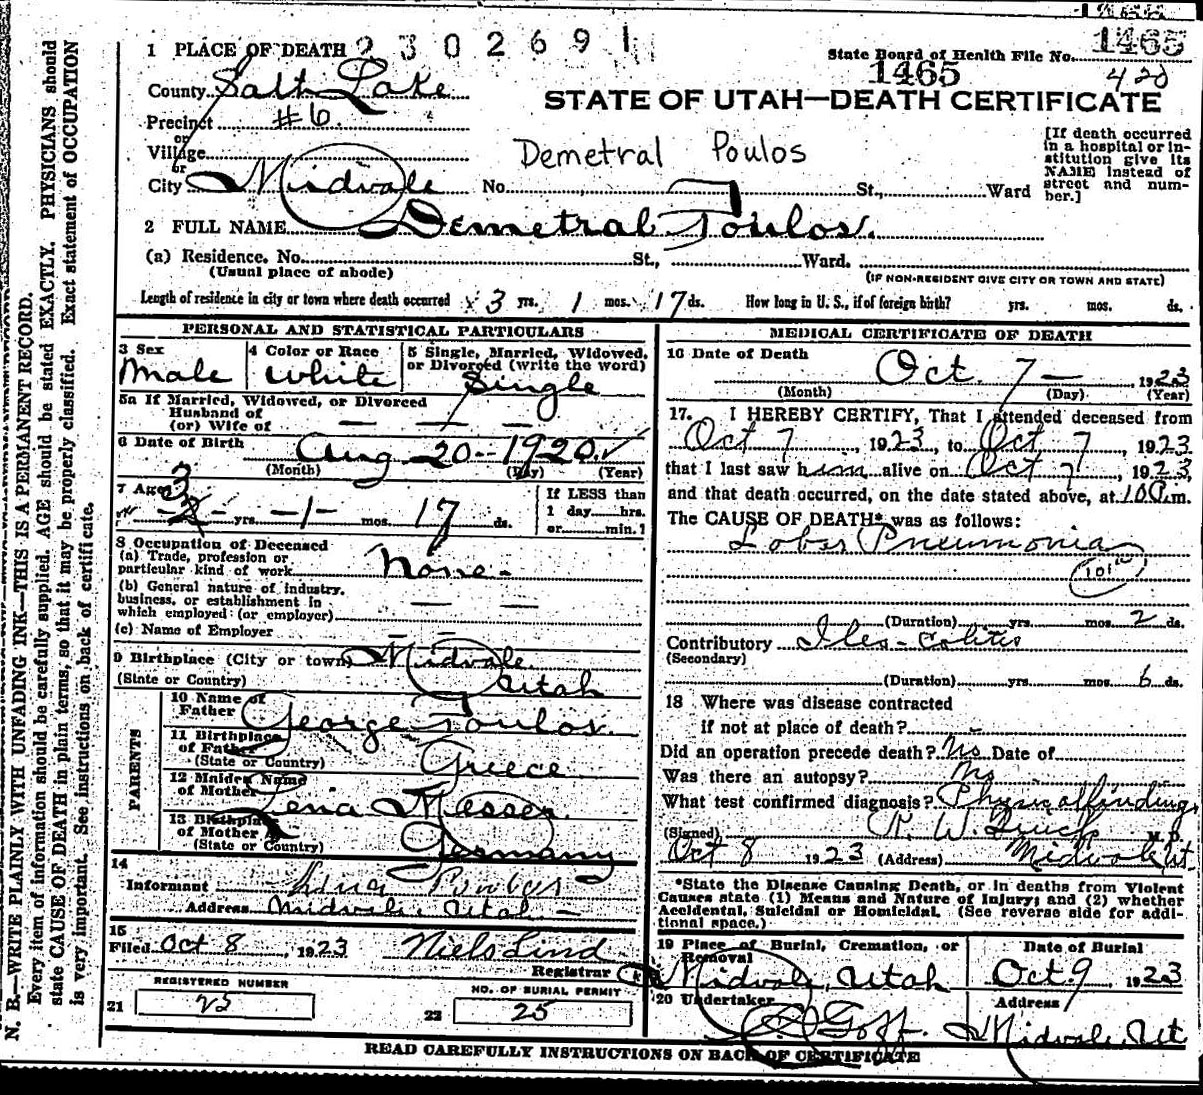 2302691
State Board of Health File No. 1465
1465 420
STATE OF UTAH—DEATH CERTIFICATE
1 PLACE OF DEATH
County Salt Lake
Precinct #6.
or
Village
or
City Midvale No. St., Ward
[If death occurred in a hospital or institution give its NAME instead of street and number.]
Demetral Poulos
2 FULL NAME Demetral Poulos.
(a) Residence. No. St., Ward.
(Usual place of abode)
(IF NON-RESIDENT GIVE CITY OR TOWN AND STATE)
Length of residence in city or town where death occurred 3 yrs. 1 mos. 17 ds. How long in U. S., if of foreign birth? yrs. mos. ds.
PERSONAL AND STATISTICAL PARTICULARS
3 Sex Male
4 Color or Race White
5 Single, Married, Widowed, or Divorced (write the word) Single
5a If Married, Widowed, or Divorced
Husband of
(or) Wife of — — —
6 Date of Birth Aug 20 - 1920
(Month) (Day) (Year)
7 Age 3 yrs. - 1 - mos. 17 ds.
If LESS than 1 day hrs. or min.
8 Occupation of Deceased
(a) Trade, profession or particular kind of work None -
(b) General nature of industry, business, or establishment in which employed (or employer) — —
(c) Name of Employer — —
9 Birthplace (City or town) Midvale
(State or Country) Utah
PARENTS
10 Name of Father George Poulos.
11 Birthplace of Father (State or Country) Greece
12 Maiden Name of Mother Lena Messer
13 Birthplace of Mother (State or Country) Germany
14
Informant
Address Midvale, Utah -
15
Filed Oct 8, 1923 Niels Lind
Registrar
REGISTERED NUMBER
21
NO. OF BURIAL PERMIT
22 25
MEDICAL CERTIFICATE OF DEATH
16 Date of Death Oct. 7 — 1923
(Month) (Day) (Year)
17. I HEREBY CERTIFY, That I attended deceased from
Oct 7, 1923, to Oct 7, 1923,
that I last saw him alive on Oct 7, 1923,
and that death occurred, on the date stated above, at 10 P.m.
The CAUSE OF DEATH* was as follows:
Lobar Pneumonia
(Duration) yrs. mos. 2 ds.
Contributory Ileo-Colitis
(Secondary)
(Duration) yrs. mos. 6 ds.
18 Where was disease contracted
if not at place of death? -
Did an operation precede death? No Date of
Was there an autopsy? No
What test confirmed diagnosis? Physical findings
(Signed) M.D.
Oct 8 1923 (Address) Midvale Ut.
*State the Disease Causing Death, or in deaths from Violent
Causes state (1) Means and Nature of Injury; and (2) whether
Accidental, Suicidal or Homicidal. (See reverse side for addi-
tional space.)
19 Place of Burial, Cremation, or Removal Midvale, Utah
Date of Burial Oct 9 1923
20 Undertaker Goff.
Address Midvale, Ut
READ CAREFULLY INSTRUCTIONS ON BACK OF CERTIFICATE
N. B.—WRITE PLAINLY WITH UNFADING INK—THIS IS A PERMANENT RECORD.
Every item of information should be carefully supplied. AGE should be stated EXACTLY. PHYSICIANS should
state CAUSE OF DEATH in plain terms, so that it may be properly classified. Exact statement of OCCUPATION
is very important. See instructions on back of certificate.